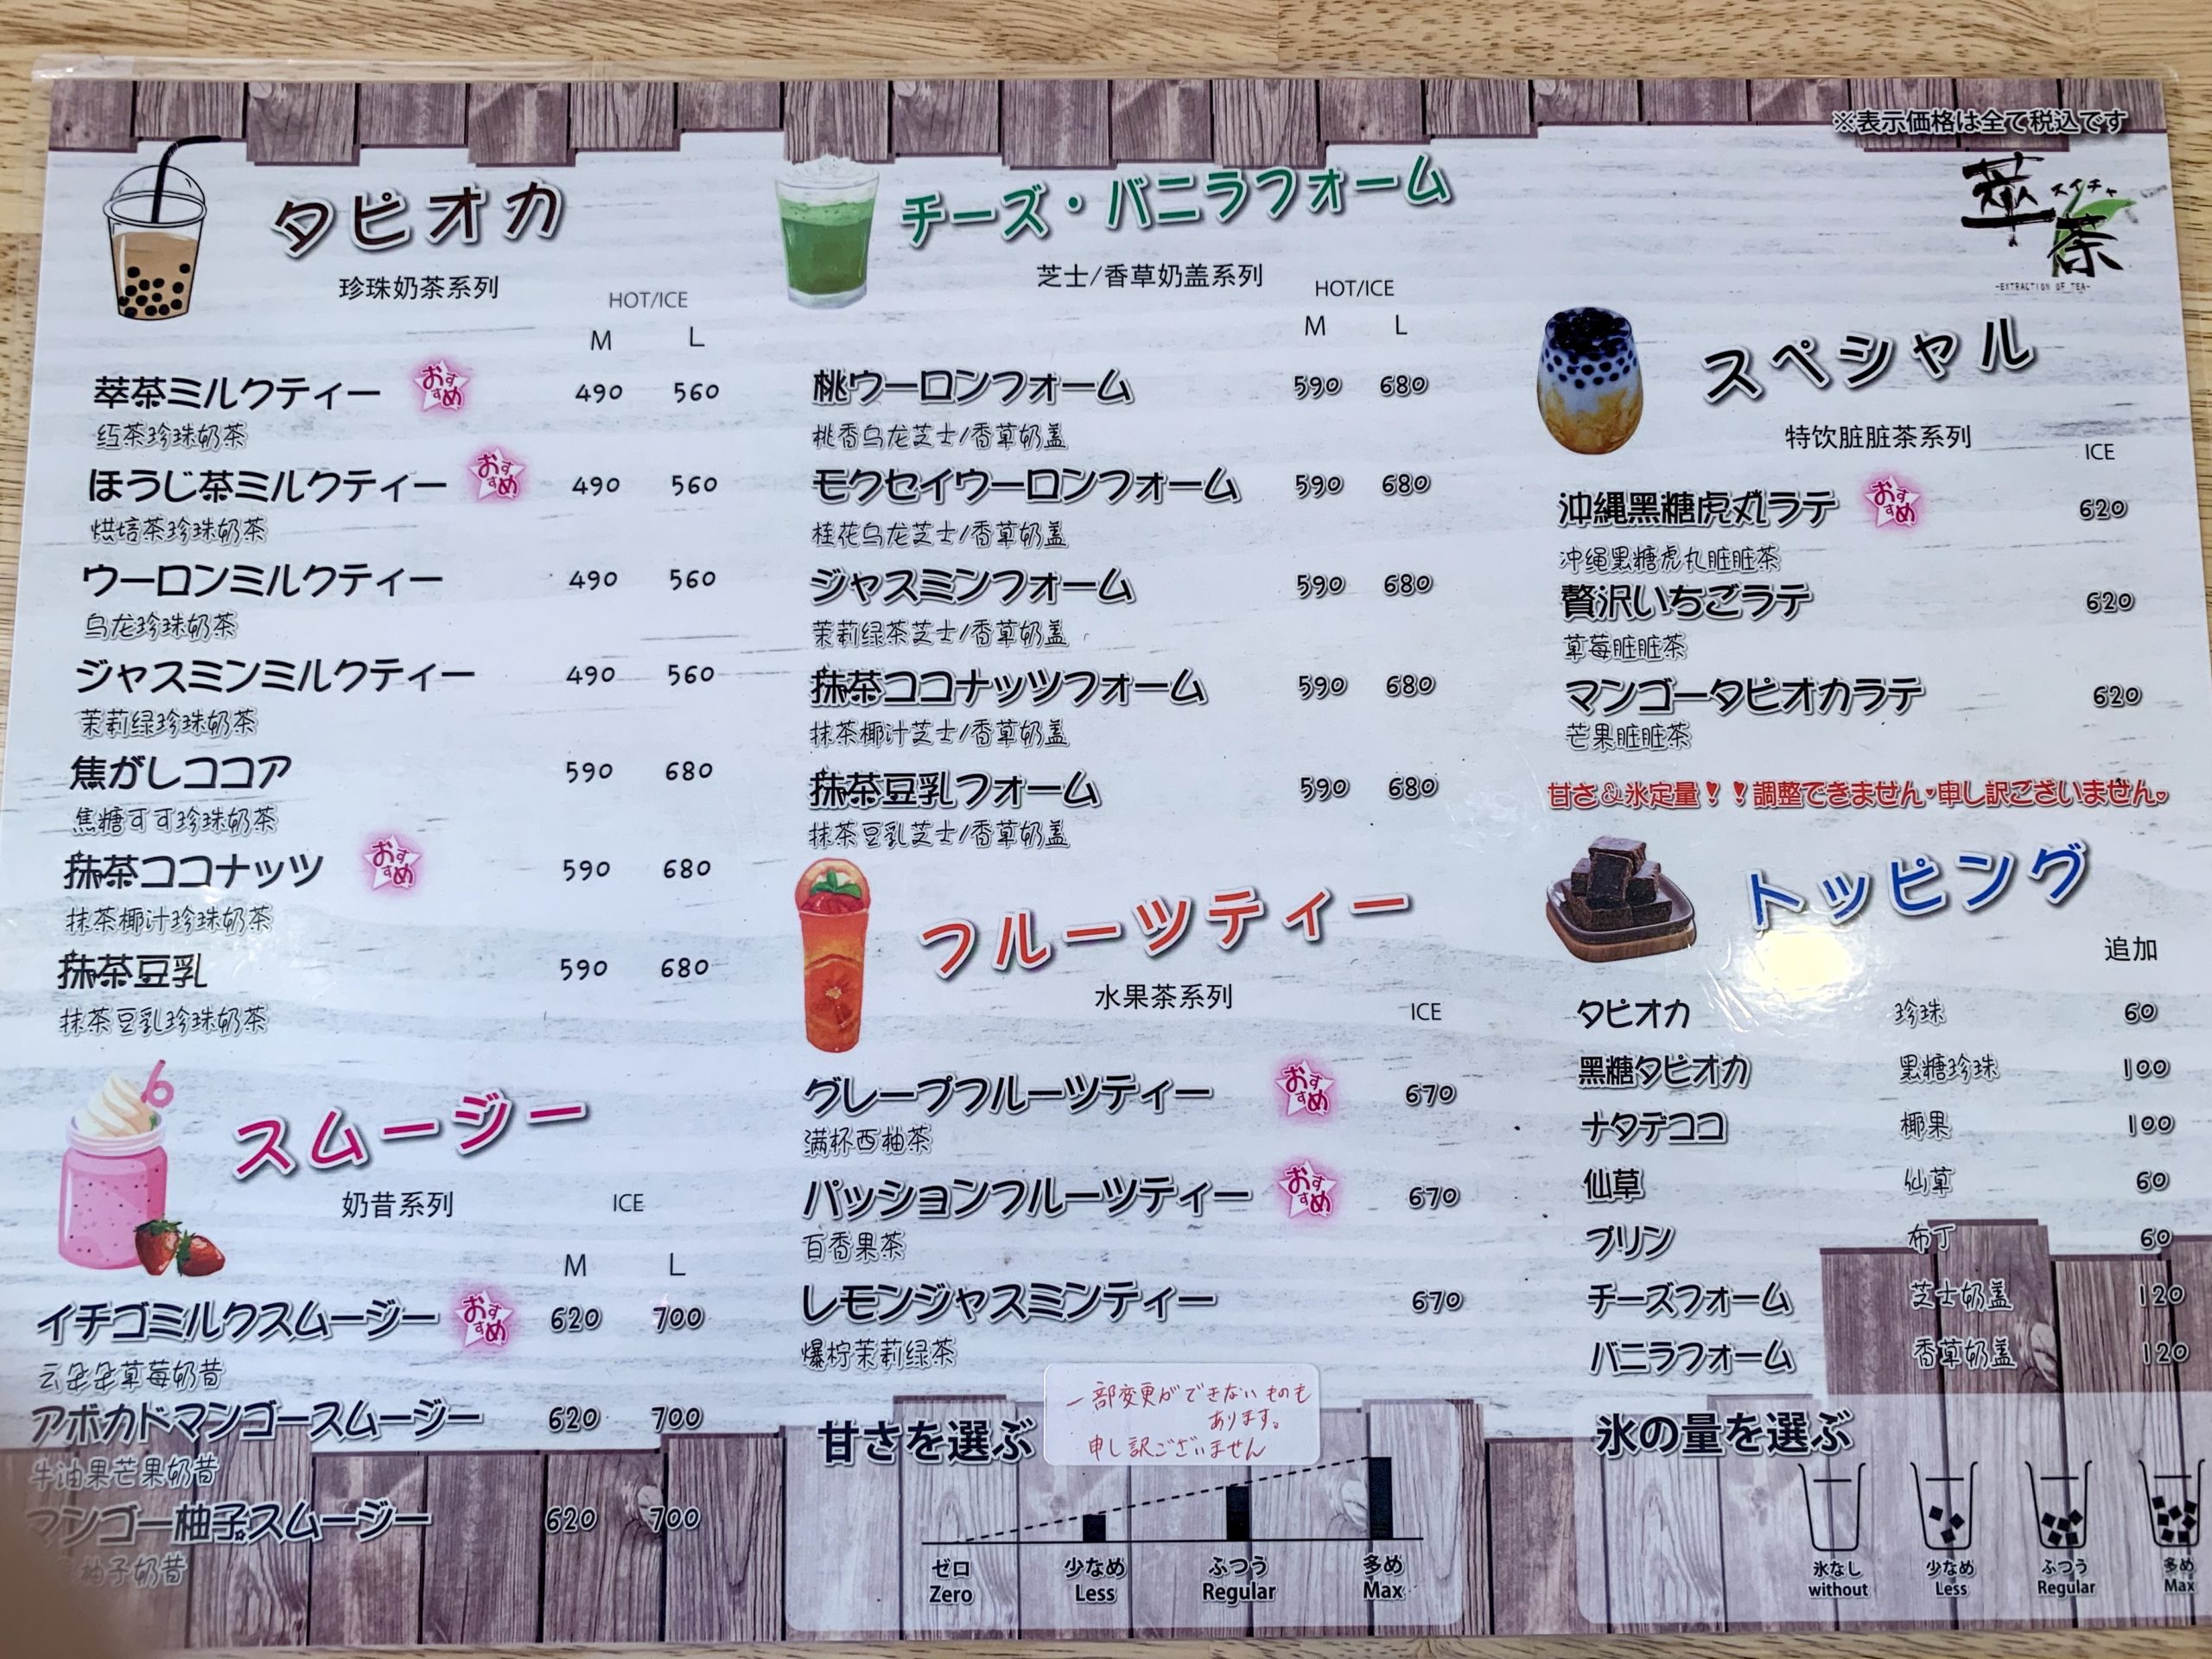 ※表示価格は全て税込です
萃茶
スイチャ
-EXTRACTION OF TEA-
タピオカ
珍珠奶茶系列
HOT/ICE
M L
萃茶ミルクティー おすすめ 490 560
红茶珍珠奶茶
ほうじ茶ミルクティー おすすめ 490 560
烘培茶珍珠奶茶
ウーロンミルクティー 490 560
乌龙珍珠奶茶
ジャスミンミルクティー 490 560
茉莉绿珍珠奶茶
焦がしココア 590 680
焦糖可可珍珠奶茶
抹茶ココナッツ おすすめ 590 680
抹茶椰汁珍珠奶茶
抹茶豆乳 590 680
抹茶豆乳珍珠奶茶
スムージー
奶昔系列
ICE
M L
イチゴミルクスムージー おすすめ 620 700
云朵朵草莓奶昔
アボカドマンゴースムージー 620 700
牛油果芒果奶昔
マンゴー柚子スムージー 620 700
柚子奶昔
チーズ・バニラフォーム
芝士/香草奶盖系列
HOT/ICE
M L
桃ウーロンフォーム 590 680
桃香乌龙芝士/香草奶盖
モクセイウーロンフォーム 590 680
桂花乌龙芝士/香草奶盖
ジャスミンフォーム 590 680
茉莉绿茶芝士/香草奶盖
抹茶ココナッツフォーム 590 680
抹茶椰汁芝士/香草奶盖
抹茶豆乳フォーム 590 680
抹茶豆乳芝士/香草奶盖
フルーツティー
水果茶系列
ICE
グレープフルーツティー おすすめ 670
满杯西柚茶
パッションフルーツティー おすすめ 670
百香果茶
レモンジャスミンティー 670
爆柠茉莉绿茶
甘さを選ぶ
一部変更ができないものも
あります。
申し訳ございません
ゼロ 少なめ ふつう 多め
Zero Less Regular Max
スペシャル
特饮脏脏茶系列
ICE
沖縄黒糖虎丸ラテ おすすめ 620
冲绳黑糖虎丸脏脏茶
贅沢いちごラテ 620
草莓脏脏茶
マンゴータピオカラテ 620
芒果脏脏茶
甘さ&氷定量!!調整できません・申し訳ございません。
トッピング
追加
タピオカ 珍珠 60
黒糖タピオカ 黑糖珍珠 100
ナタデココ 椰果 100
仙草 仙草 60
プリン 布丁 60
チーズフォーム 芝士奶盖 120
バニラフォーム 香草奶盖 120
氷の量を選ぶ
氷なし 少なめ ふつう 多め
without Less Regular Max